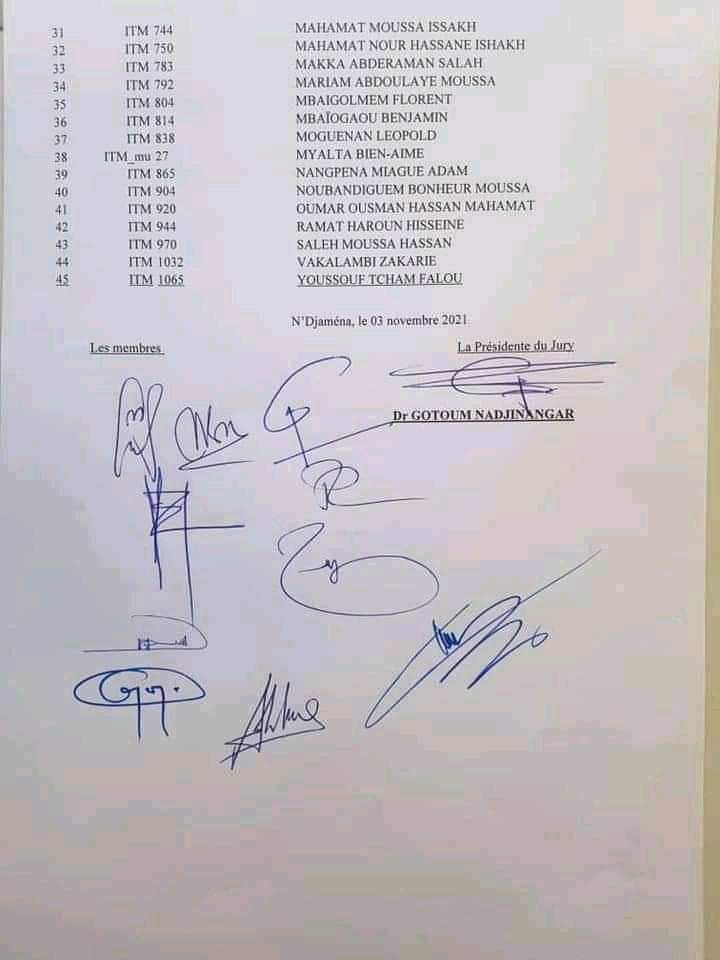 31 ITM 744 MAHAMAT MOUSSA ISSAKH
32 ITM 750 MAHAMAT NOUR HASSANE ISHAKH
33 ITM 783 MAKKA ABDERAMAN SALAH
34 ITM 792 MARIAM ABDOULAYE MOUSSA
35 ITM 804 MBAIGOLMEM FLORENT
36 ITM 814 MBAÏOGAOU BENJAMIN
37 ITM 838 MOGUENAN LEOPOLD
38 ITM_mu 27 MYALTA BIEN-AIME
39 ITM 865 NANGPENA MIAGUE ADAM
40 ITM 904 NOUBANDIGUEM BONHEUR MOUSSA
41 ITM 920 OUMAR OUSMAN HASSAN MAHAMAT
42 ITM 944 RAMAT HAROUN HISSEINE
43 ITM 970 SALEH MOUSSA HASSAN
44 ITM 1032 VAKALAMBI ZAKARIE
45 ITM 1065 YOUSSOUF TCHAM FALOU
N'Djaména, le 03 novembre 2021
Les membres La Présidente du Jury
Dr GOTOUM NADJINANGAR